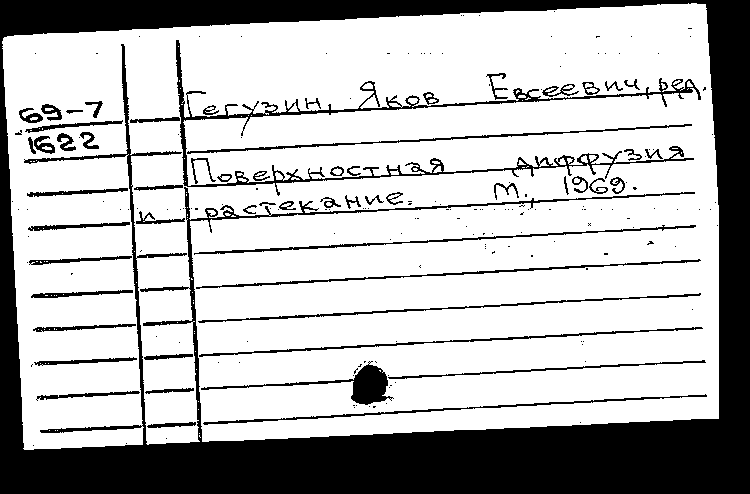 69-7
1622
Гегузин, Яков Евсеевич, ред.
Поверхностная диффузия
и растекание. М., 1969.